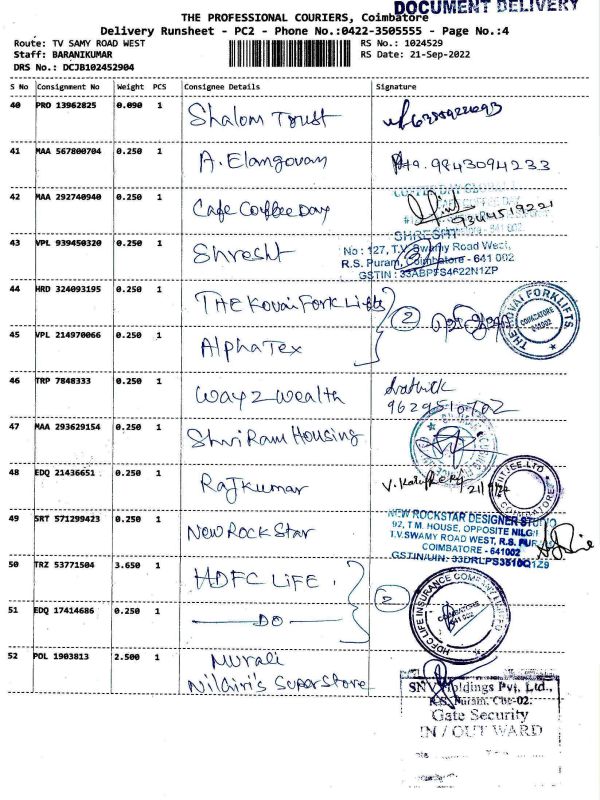 DOCUMENT DELIVERY
THE PROFESSIONAL COURIERS, Coimbatore
Delivery Runsheet - PC2 - Phone No.:0422-3505555 - Page No.:4
Route: TV SAMY ROAD WEST RS No.: 1024529
Staff: BARANIKUMAR RS Date: 21-Sep-2022
DRS No.: DCJB102452904
S No Consignment No Weight PCS Consignee Details Signature
40 PRO 13962825 0.090 1 Shalom Trust
41 MAA 567800704 0.250 1 A. Elangovan 9843094233
42 MAA 292740940 0.250 1 Cafe Coffee Day 9344519221
43 VPL 939450320 0.250 1 Shresht
SHRESHT
No : 127, T.V. Swamy Road West,
R.S. Puram, Coimbatore - 641 002
GSTIN : 33ABPFS4622N1ZP
44 HRD 324093195 0.250 1 THE Kovai Fork Lifts 2
THE KOVAI FORKLIFTS
COIMBATORE
641002
45 VPL 214970066 0.250 1 Alpha Tex
46 TRP 7848333 0.250 1 Way 2 Wealth
47 MAA 293629154 0.250 1 Shri Ram Housing
48 EDQ 21436651 0.250 1 Rajkumar
49 SRT 571299423 0.250 1 New Rock Star
NEW ROCKSTAR DESIGNER STUDIO
92, T.M. HOUSE, OPPOSITE NILGIRI
T.V.SWAMY ROAD WEST, R.S. PUR
COIMBATORE - 641002
GSTIN/UIN: 33DRLPS3510Q1Z9
50 TRZ 53771504 3.650 1 HDFC LIFE. 2
HDFC LIFE INSURANCE COMPANY LIMITED
COIMBATORE
641 002
51 EDQ 17414686 0.250 1 DO
52 POL 1903813 2.500 1 Murali
Nilgiri's Superstore
SNV Holdings Pvt, Ltd.,
R.S. Puram, Cbe-02.
Gate Security
IN / OUT WARD